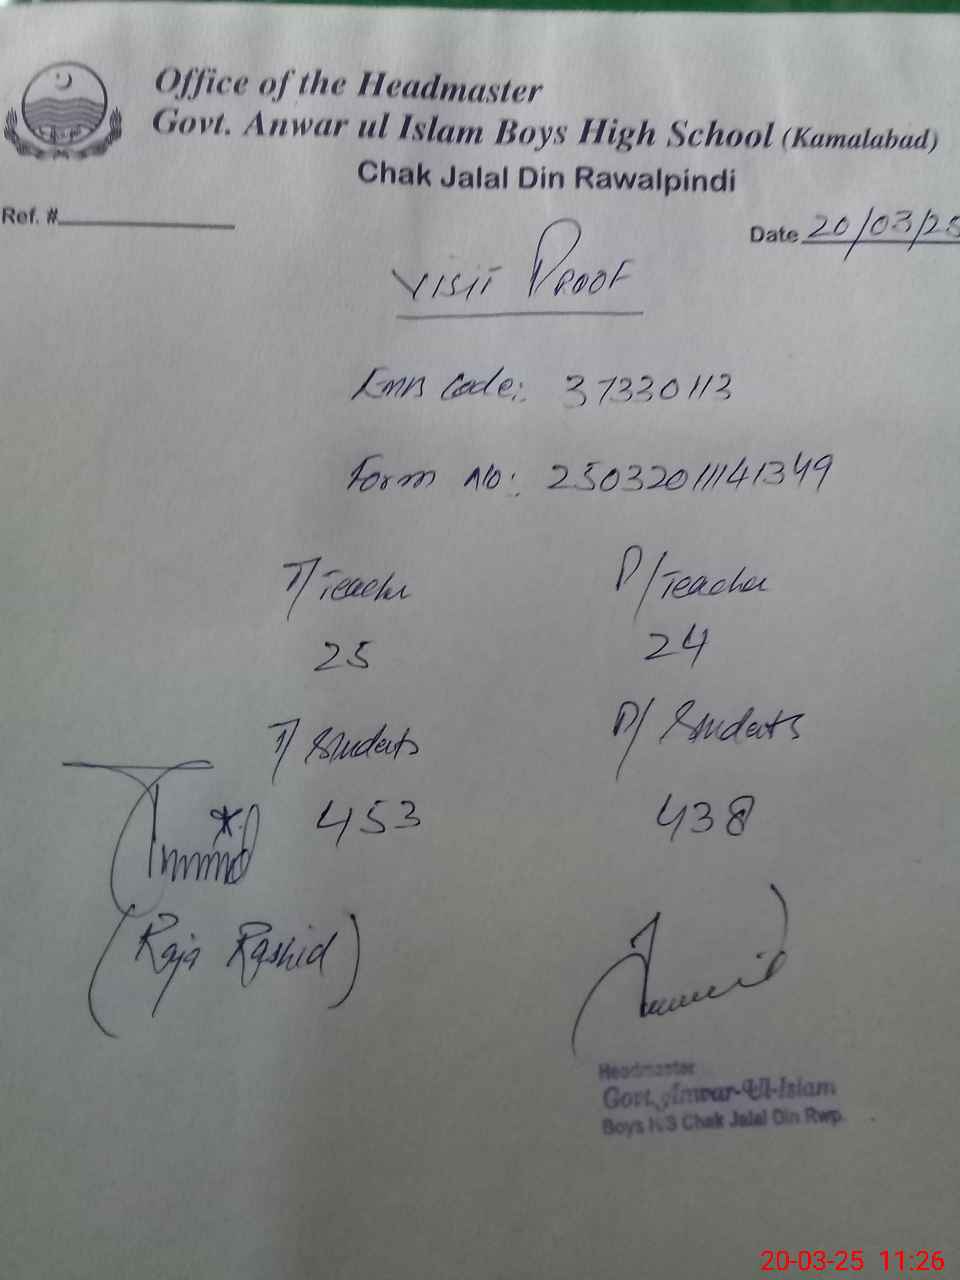 Office of the Headmaster
Govt. Anwar ul Islam Boys High School (Kamalabad)
Chak Jalal Din Rawalpindi
Ref. #
Date 20/03/25
VISIT PROOF
Code: 37330113
Form No: 25032011141349
T/Teacher P/Teacher
25 24
T/Students P/Students
453 438
(Raja Rashid)
Headmaster
Govt. Anwar-Ul-Islam
Boys H/S Chak Jalal Din Rwp.
20-03-25 11:26